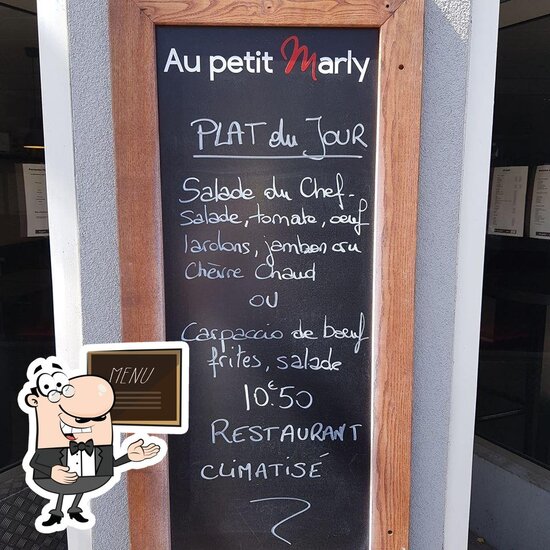 Au petit Marly
PLAT du JOUR
Salade du Chef-
Salade, tomate, œuf
lardons, jambon cru
Chèvre Chaud
OU
Carpaccio de bœuf
frites, salade
10€50
RESTAURANT
CLIMATISÉ
MENU